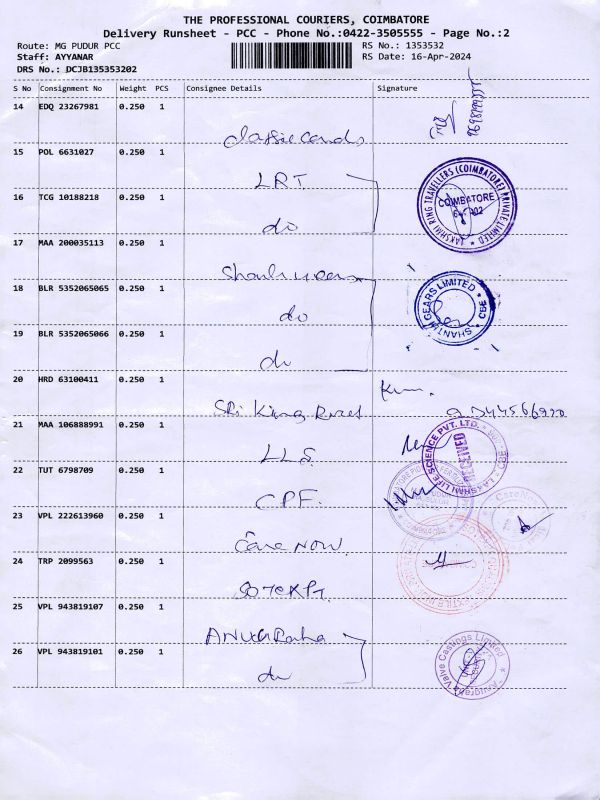 THE PROFESSIONAL COURIERS, COIMBATORE
Delivery Runsheet - PCC - Phone No.:0422-3505555 - Page No.:2
Route: MG PUDUR PCC
RS No.: 1353532
Staff: AYYANAR
RS Date: 16-Apr-2024
DRS No.: DCJB135353202
S No Consignment No Weight PCS Consignee Details Signature
14 EDQ 23267981 0.250 1
Classic cards
15 POL 6631027 0.250 1
LRT
16 TCG 10188218 0.250 1
do
LAKSHAI RING TRAVELLERS (COIMBATORE) PRIVATE LIMITED
COIMBATORE
17 MAA 200035113 0.250 1
Shanti gears
18 BLR 5352065065 0.250 1
do
SHANTHI GEARS LIMITED CBE
19 BLR 5352065066 0.250 1
do
20 HRD 63100411 0.250 1
Sri King
21 MAA 106888991 0.250 1
LLS
LAKSHAI LIFE SCIENCE PVT. LTD.
RECEIVED
22 TUT 6798709 0.250 1
CPF
23 VPL 222613960 0.250 1
Care Now
CareNow
24 TRP 2099563 0.250 1
25 VPL 943819107 0.250 1
ANUGRaha
26 VPL 943819101 0.250 1
do
Anugraha Valve Castings Limited